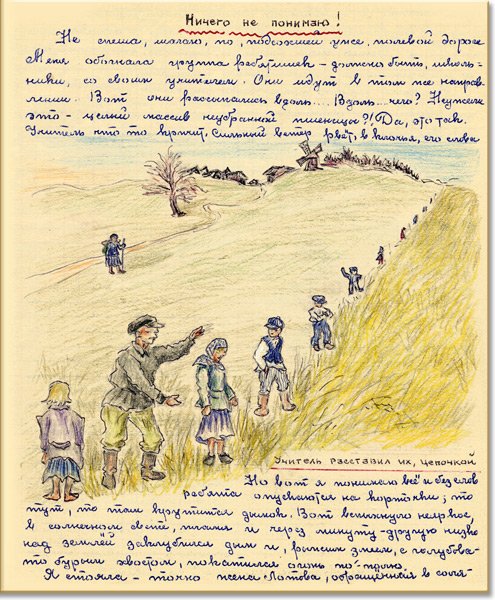 Ничего не понимаю!
Не спеша, шагаю, по, подсохшей уже, полевой дороге
Меня обогнала группа ребятишек – должно быть, школь-
ники, со своим учителем. Они идут в том же направ-
лении. Вот они рассыпались вдоль.... Вдоль... чего? Неужели
это – целый массив неубранной пшеницы?! Да, это так.
Учитель что то кричит. Сильный ветер рвёт, в клочья, его слова
Учитель расставил их, цепочкой
Но вот я понимаю всё и без слов
ребята опускаются на корточки; то
тут, то там крутится дымок. Вот вспыхнуло неяркое,
в солнечном свете, пламя и через минуту-другую низко
над землёй заклубился дым и, рыжим змеем, с голубова-
то бурым хвостом, покатился огонь по полю.
Я стояла – точно жена Лотова, обращённая в соля-